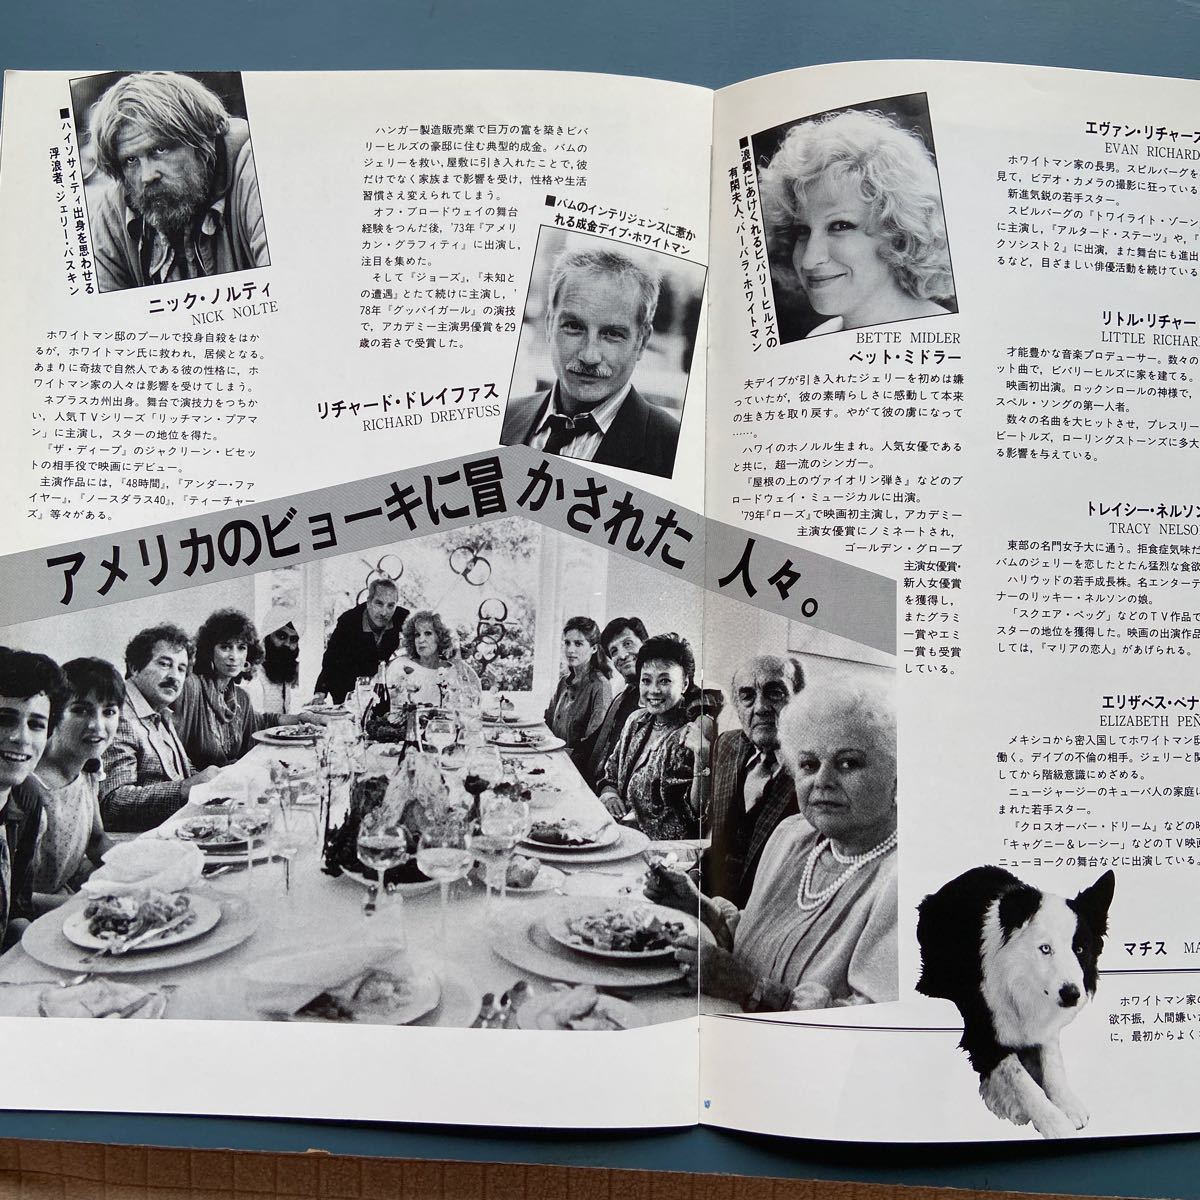 ■ハイソサイティ出身を思わせる
浮浪者、ジェリー・バスキン
ニック・ノルティ
NICK NOLTE
ホワイトマン邸のプールで投身自殺をはか
るが，ホワイトマン氏に救われ，居候となる。
あまりに奇抜で自然人である彼の性格に，ホ
ワイトマン家の人々は影響を受けてしまう。
ネブラスカ州出身。舞台で演技力をつちか
い，人気TVシリーズ「リッチマン・プアマ
ン」に主演し，スターの地位を得た。
『ザ・ディープ』のジャクリーン・ビセッ
トの相手役で映画にデビュー。
主演作品には，『48時間』，『アンダー・ファ
イヤー』，『ノースダラス40』，『ティーチャー
ズ』等々がある。
ハンガー製造販売業で巨万の富を築きビバ
リーヒルズの豪邸に住む典型的成金。バムの
ジェリーを救い，屋敷に引き入れたことで，彼
だけでなく家族まで影響を受け，性格や生活
習慣さえ変えられてしまう。
オフ・ブロードウェイの舞台
経験をつんだ後，'73年『アメリ
カン・グラフィティ』に出演し，
注目を集めた。
そして『ジョーズ』，『未知と
の遭遇』とたて続けに主演し，'
78年『グッバイガール』の演技
で，アカデミー主演男優賞を29
歳の若さで受賞した。
■バムのインテリジェンスに惹か
れる成金デイブ・ホワイトマン
リチャード・ドレイファス
RICHARD DREYFUSS
アメリカのビョーキに冒かされた人々。
■浪費にあけくれるビバリーヒルズの
有閑夫人、バーバラ・ホワイトマン
BETTE MIDLER
ベット・ミドラー
夫デイブが引き入れたジェリーを初めは嫌
っていたが，彼の素晴らしさに感動して本来
の生き方を取り戻す。やがて彼の虜になって
……。
ハワイのホノルル生まれ。人気女優である
と共に，超一流のシンガー。
『屋根の上のヴァイオリン弾き』などのブ
ロードウェイ・ミュージカルに出演。
'79年『ローズ』で映画初主演し，アカデミー
主演女優賞にノミネートされ，
ゴールデン・グローブ
主演女優賞・
新人女優賞
を獲得し，
またグラミ
ー賞やエミ
ー賞も受賞
している。
エヴァン・リチャーズ
EVAN RICHARD
ホワイトマン家の長男。スピルバーグを
見て，ビデオ・カメラの撮影に狂っている
新進気鋭の若手スター。
スピルバーグの『トワイライト・ゾーン
に主演し，『アルタード・ステーツ』や，『
クソシスト2』に出演，また舞台にも進出
るなど，目ざましい俳優活動を続けている
リトル・リチャー
LITTLE RICHAR
才能豊かな音楽プロデューサー。数々の
ット曲で，ビバリーヒルズに家を建てる。
映画初出演。ロックンロールの神様で，
スペル・ソングの第一人者。
数々の名曲を大ヒットさせ，プレスリー
ビートルズ，ローリングストーンズに多大
る影響を与えている。
トレイシー・ネルソン
TRACY NELSO
東部の名門女子大に通う。拒食症気味だ
バムのジェリーを恋したとたん猛烈な食欲
ハリウッドの若手成長株。名エンターテ
ナーのリッキー・ネルソンの娘。
「スクエア・ペッグ」などのTV作品で
スターの地位を獲得した。映画の出演作品
しては，『マリアの恋人』があげられる。
エリザベス・ペナ
ELIZABETH PEÑ
メキシコから密入国してホワイトマン邸
働く。デイブの不倫の相手。ジェリーと関
してから階級意識にめざめる。
ニュージャージーのキューバ人の家庭に
まれた若手スター。
『クロスオーバー・ドリーム』などの映
「キャグニー&レーシー」などのTV映画
ニューヨークの舞台などに出演している。
マチス MA
ホワイトマン家の
欲不振，人間嫌いた
に，最初からよく